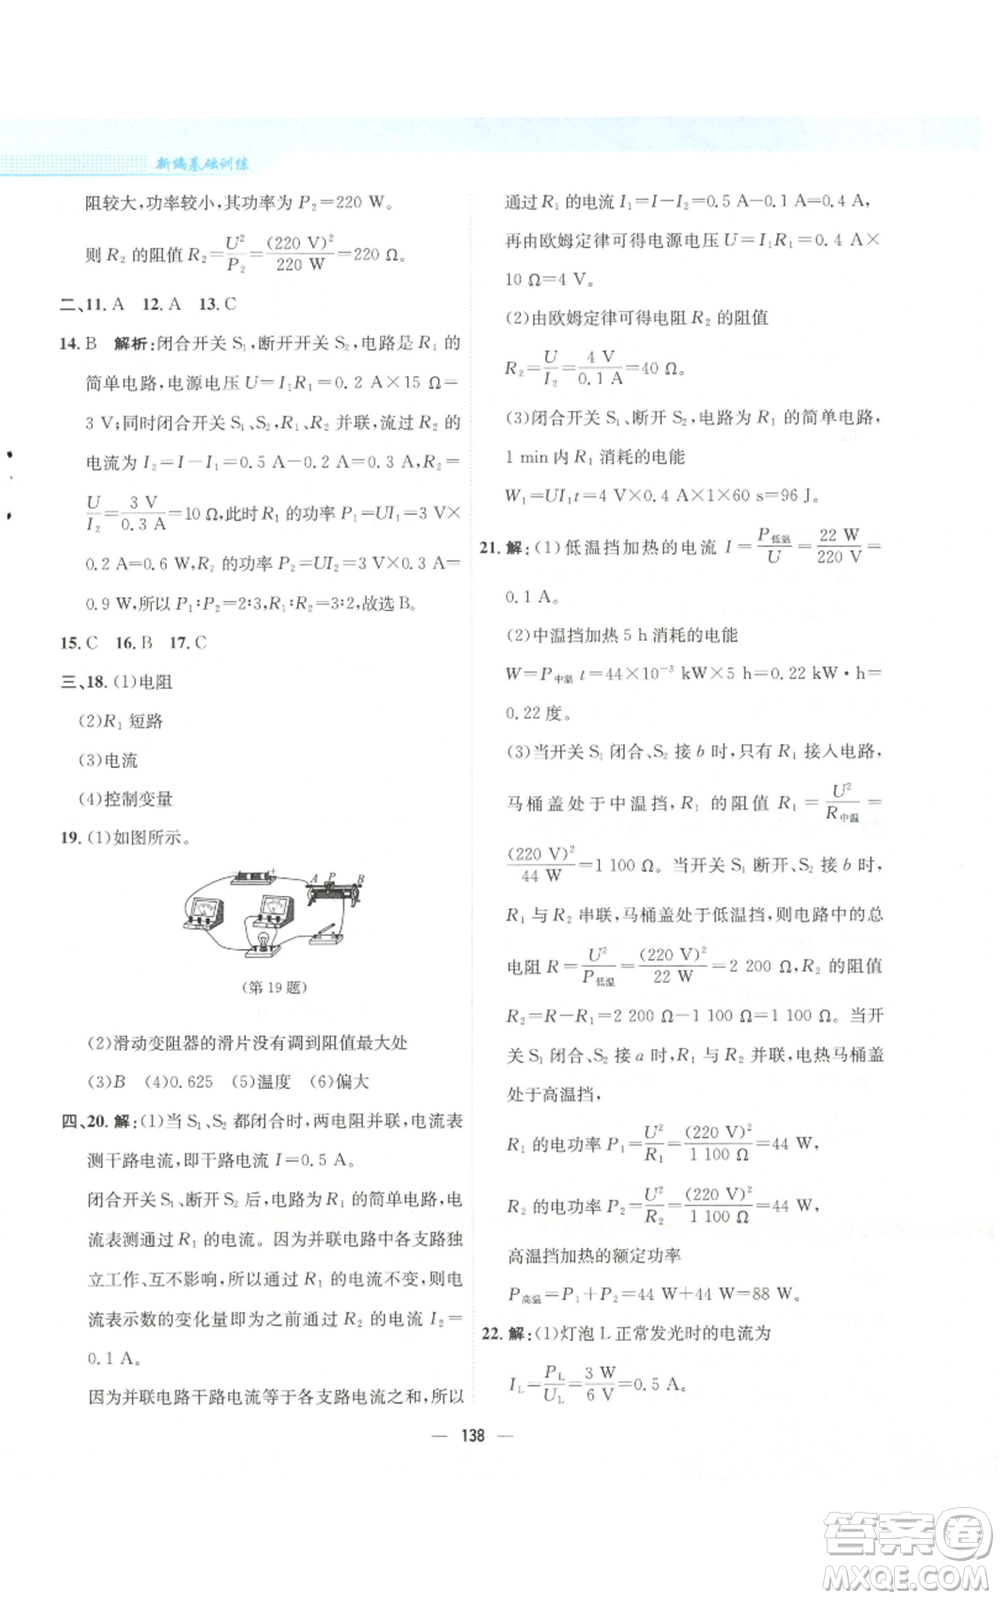 新编基础训练
阻较大,功率较小,其功率为 P₂=220 W。
则 R₂ 的阻值 R₂=U²/P₂=(220 V)²/220 W=220 Ω。
二、11. A 12. A 13. C
14. B 解析:闭合开关 S₁,断开开关 S₂,电路是 R₁ 的
简单电路,电源电压 U=I₁R₁=0.2 A×15 Ω=
3 V;同时闭合开关 S₁、S₂,R₁、R₂ 并联,流过 R₂
的电流为 I₂=I-I₁=0.5 A-0.2 A=0.3 A,R₂=
U/I₂=3 V/0.3 A=10 Ω,此时 R₁ 的功率 P₁=UI₁=3 V×
0.2 A=0.6 W,R₂ 的功率 P₂=UI₂=3 V×0.3 A=
0.9 W,所以 P₁∶P₂=2∶3,R₁∶R₂=3∶2,故选 B。
15. C 16. B 17. C
三、18. (1)电阻
(2)R₁ 短路
(3)电流
(4)控制变量
19. (1)如图所示。
A P B
(第 19 题)
(2)滑动变阻器的滑片没有调到阻值最大处
(3)B (4)0.625 (5)温度 (6)偏大
四、20. 解:(1)当 S₁、S₂ 都闭合时,两电阻并联,电流表
测干路电流,即干路电流 I=0.5 A。
闭合开关 S₁、断开 S₂ 后,电路为 R₁ 的简单电路,电
流表测通过 R₁ 的电流。因为并联电路中各支路独
立工作、互不影响,所以通过 R₁ 的电流不变,则电
流表示数的变化量即为之前通过 R₂ 的电流 I₂=
0.1 A。
因为并联电路干路电流等于各支路电流之和,所以
通过 R₁ 的电流 I₁=I-I₂=0.5 A-0.1 A=0.4 A,
再由欧姆定律可得电源电压 U=I₁R₁=0.4 A×
10 Ω=4 V。
(2)由欧姆定律可得电阻 R₂ 的阻值
R₂=U/I₂=4 V/0.1 A=40 Ω。
(3)闭合开关 S₁、断开 S₂,电路为 R₁ 的简单电路,
1 min 内 R₁ 消耗的电能
W₁=UI₁t=4 V×0.4 A×1×60 s=96 J。
21. 解:(1)低温挡加热的电流 I=P低温/U=22 W/220 V=
0.1 A。
(2)中温挡加热 5 h 消耗的电能
W=P中温 t=44×10⁻³ kW×5 h=0.22 kW·h=
0.22 度。
(3)当开关 S₁ 闭合、S₂ 接 b 时,只有 R₁ 接入电路,
马桶盖处于中温挡,R₁ 的阻值 R₁=U²/R中温=
(220 V)²/44 W=1 100 Ω。当开关 S₁ 断开、S₂ 接 b 时,
R₁ 与 R₂ 串联,马桶盖处于低温挡,则电路中的总
电阻 R=U²/P低温=(220 V)²/22 W=2 200 Ω,R₂ 的阻值
R₂=R-R₁=2 200 Ω-1 100 Ω=1 100 Ω。当开
关 S₁ 闭合、S₂ 接 a 时,R₁ 与 R₂ 并联,电热马桶盖
处于高温挡,
R₁ 的电功率 P₁=U²/R₁=(220 V)²/1 100 Ω=44 W,
R₂ 的电功率 P₂=U²/R₂=(220 V)²/1 100 Ω=44 W,
高温挡加热的额定功率
P高温=P₁+P₂=44 W+44 W=88 W。
22. 解:(1)灯泡 L 正常发光时的电流为
I_L=P_L/U_L=3 W/6 V=0.5 A。
— 138 —
答案卷
MXQE.COM